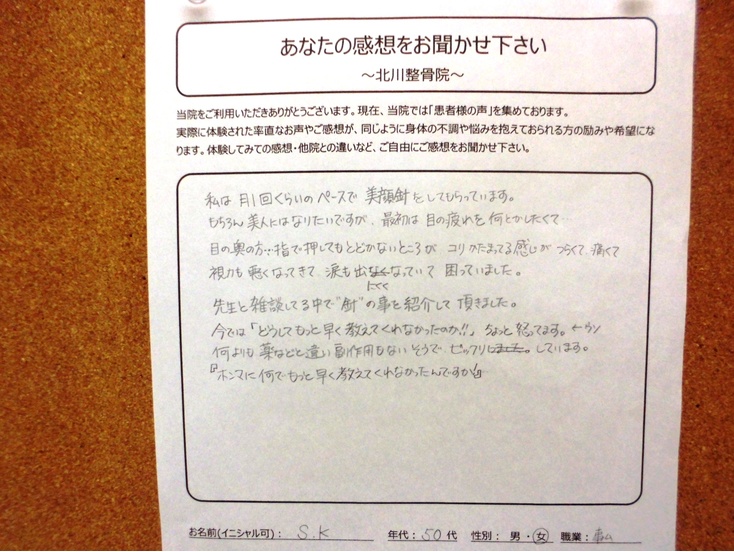 あなたの感想をお聞かせ下さい
～北川整骨院～
当院をご利用いただきありがとうございます。現在、当院では「患者様の声」を集めております。
実際に体験された率直なお声やご感想が、同じように身体の不調や悩みを抱えておられる方の励みや希望にな
ります。体験してみての感想・他院との違いなど、ご自由にご感想をお聞かせ下さい。
私は月1回くらいのペースで美顔針をしてもらっています。
もちろん美人にはなりたいですが、最初は目の疲れを何とかしたくて…
目の奥の方…指で押してもとどかないところがコリかたまってる感じがつらくて、痛くて
視力も悪くなってきて、涙も出なくなっていて困っていました。
にくく
先生と雑談してる中で"針"の事を紹介して頂きました。
今では「どうしてもっと早く教えてくれなかったのか!!」ちょっと怒ってます。←ウソ
何よりも薬などと違い副作用もないそうでビックリしました。しています。
『ホンマに何でもっと早く教えてくれなかったんですか』
お名前(イニシャル可)： S.K 年代：50代 性別：男・女 職業：